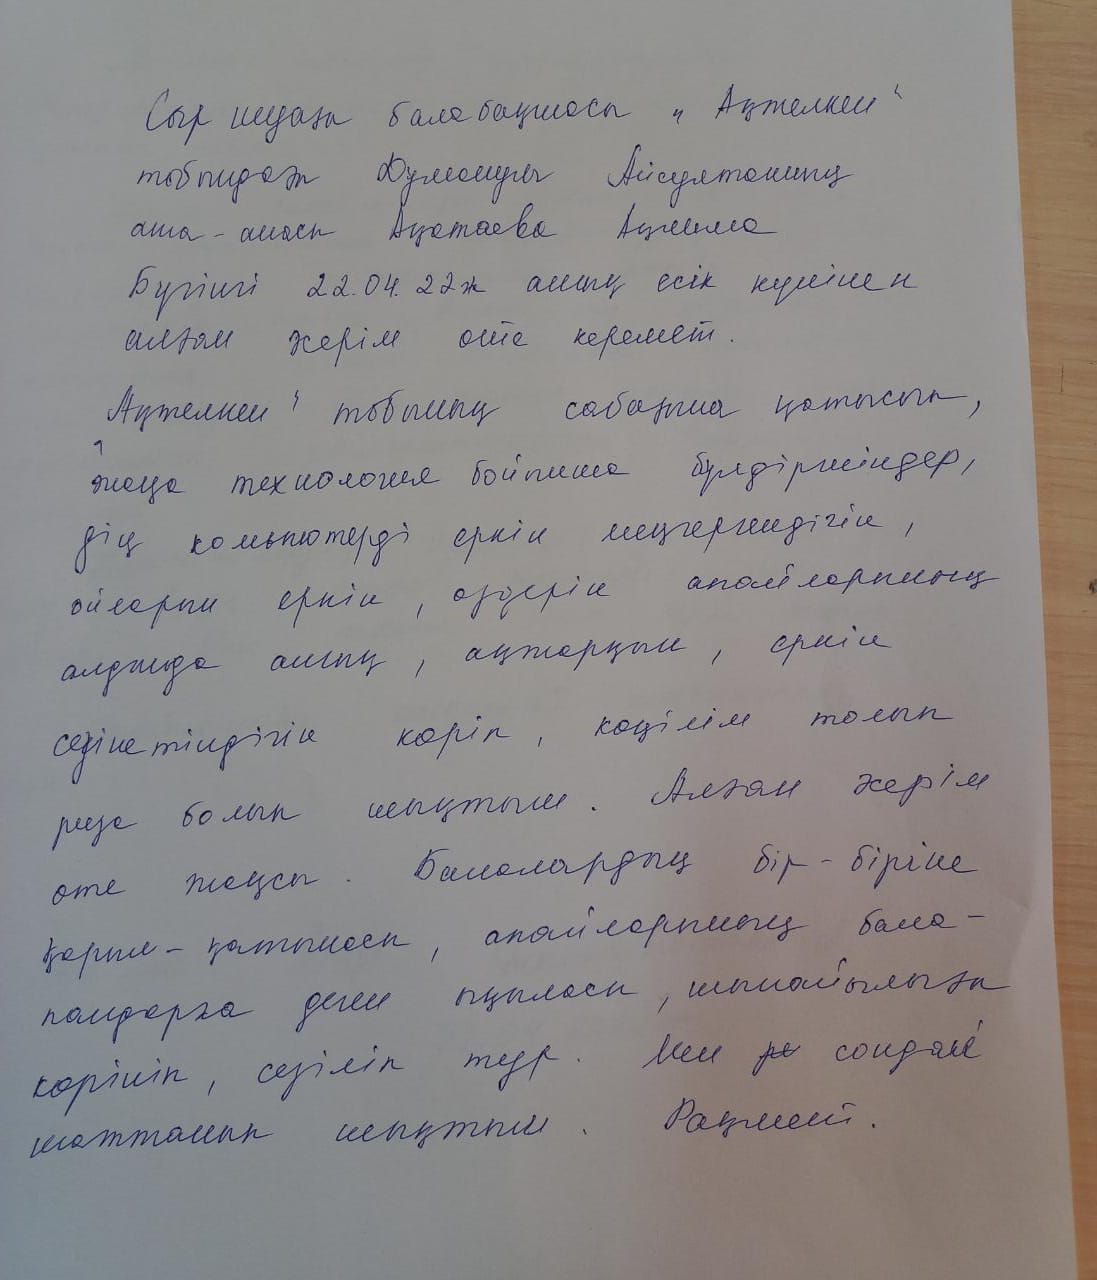 Сыр шуағы балабақшасы „ Ақжелкен"
тобындағы Думанұлы Айсұлтанның
ата-анасы Ақатаева Ақмима
Бүгінгі 22.04.22ж ашық есік күнінен
алған әсерім өте керемет.
„Ақжелкен" тобының сабағына қатысып,
жаңа технология бойынша бүлдіршіндер,
дің компютерді еркін меңгергендігін,
ойларын еркін, өздерін апайларының
алдында ашық, ақжарқын, еркін
сезінетіндігін көріп, көңілім толып
риза болып шықтым. Алған әсерім
өте жақсы. Балалардың бір-біріне
қарым-қатынасы, апайларының бала-
пандарға деген ықыласы, шынайылығы
көрініп, сезіліп тұр. Мен сондай
шаттанып шықтым. Рақмет.